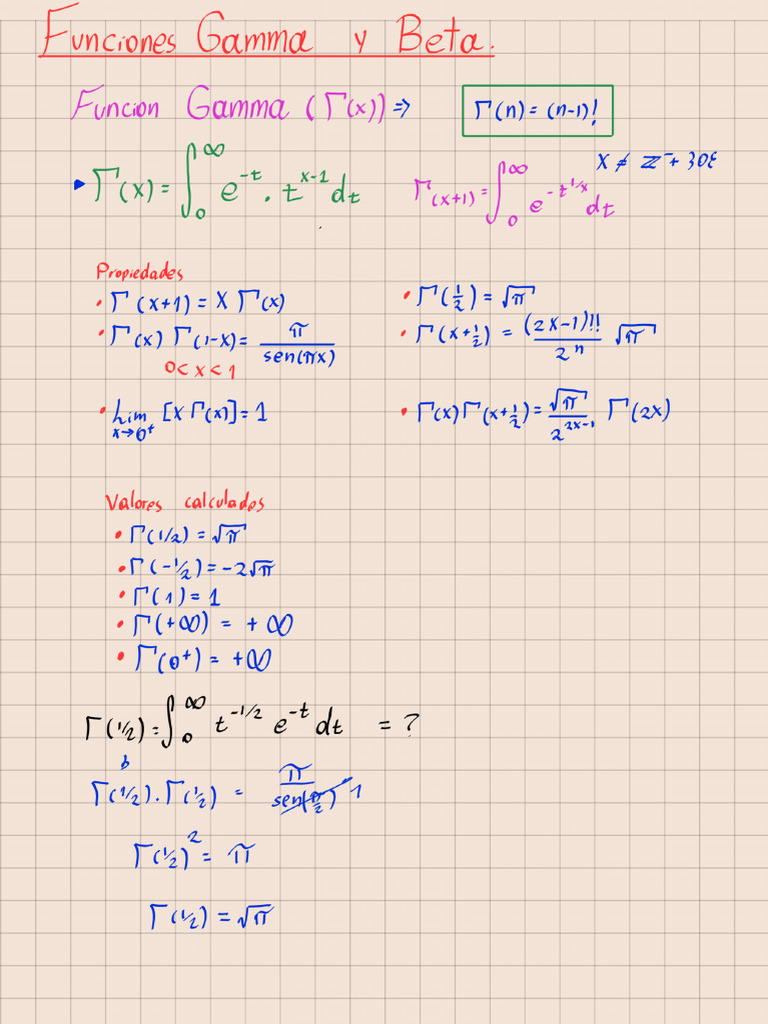 Funciones Gamma y Beta.
Funcion Gamma (Γ(x)) ⇒ Γ(n) = (n-1)!
x ≠ ℤ⁻ + {0}
▸ Γ(x) = ∫₀^∞ e^{-t} . t^{x-1} dt
Γ(x+1) = ∫₀^∞ e^{-t^{1/x}} dt
Propiedades
• Γ(x+1) = x Γ(x)
• Γ(x) Γ(1-x) = π / sen(πx)
0 < x < 1
• Lim x→0⁺ [x Γ(x)] = 1
• Γ(1/2) = √π
• Γ(x+1/2) = (2x-1)!! / 2ⁿ √π
• Γ(x) Γ(x+1/2) = √π / 2^{2x-1} Γ(2x)
Valores calculados
• Γ(1/2) = √π
• Γ(-1/2) = -2√π
• Γ(1) = 1
• Γ(+∞) = +∞
• Γ(0⁺) = +∞
Γ(1/2) = ∫₀^∞ t^{-1/2} e^{-t} dt = ?
Γ(1/2) . Γ(1/2) = π / sen(π/2) 1
Γ(1/2)² = π
Γ(1/2) = √π